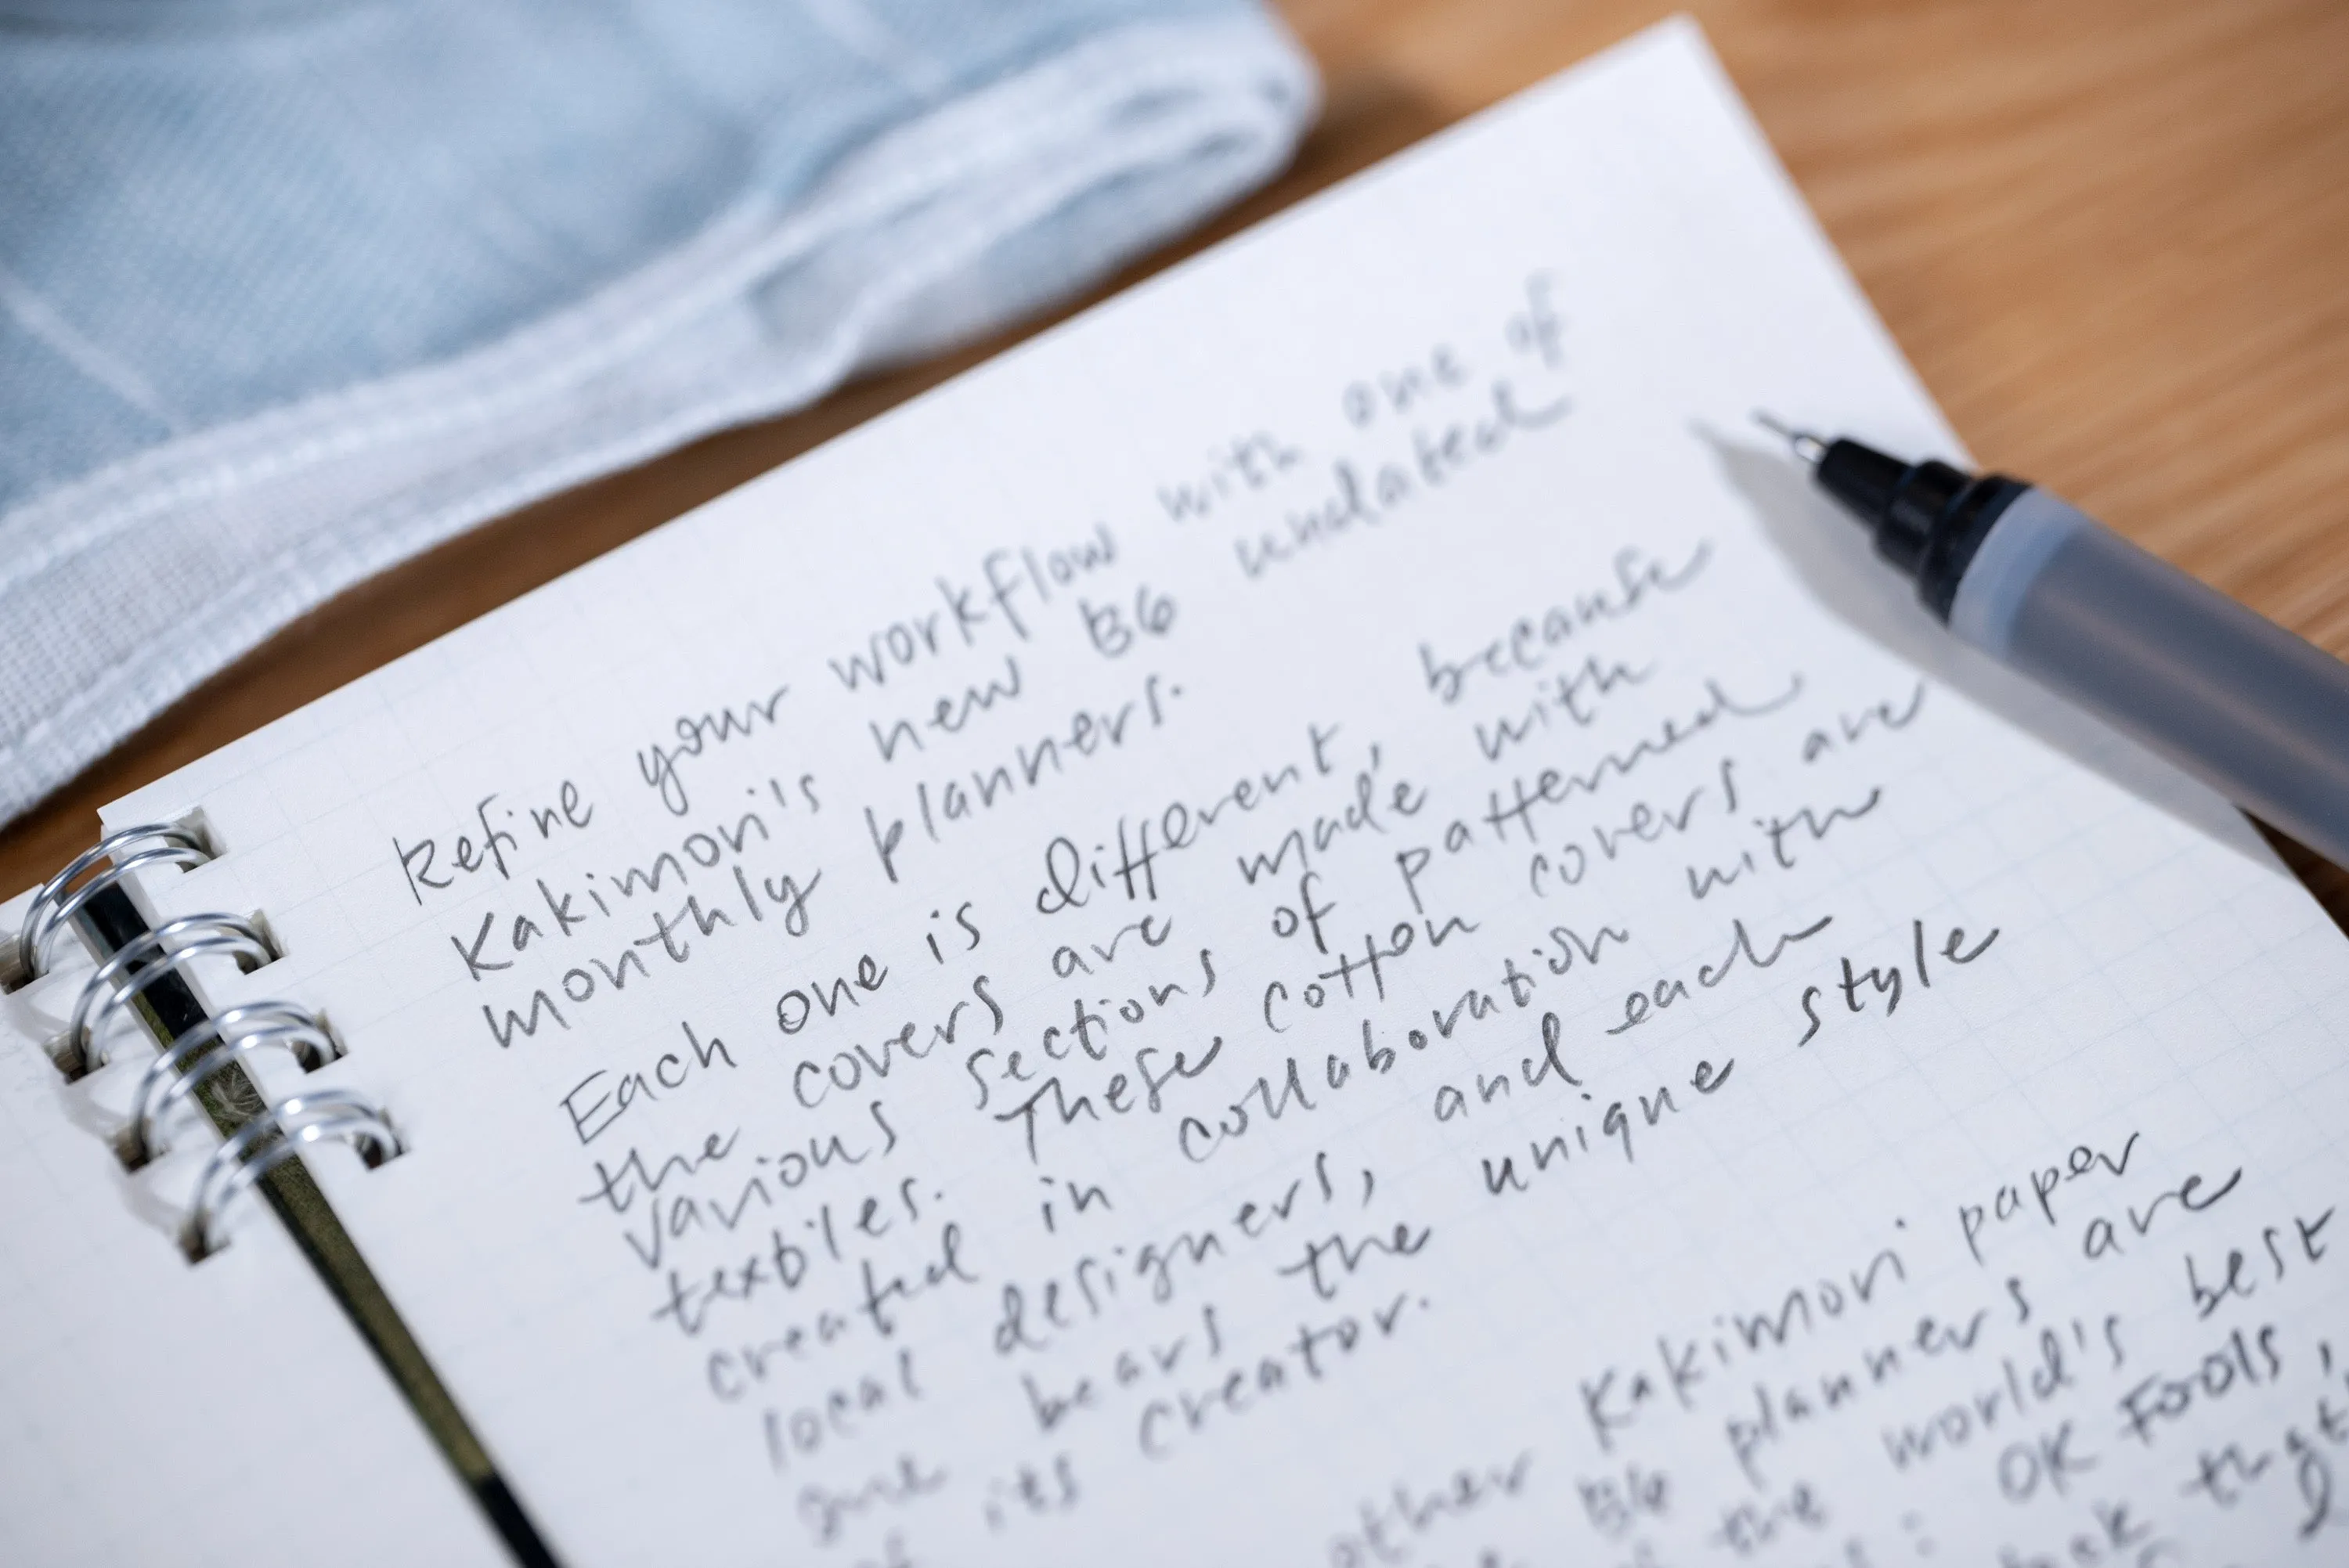 Refine your workflow with one of
Kakimori's new B6 undated
monthly planners.
Each one is different, because
the covers are made with
various sections of patterned
textiles. These cotton covers are
created in collaboration with
local designers, and each
one bears the unique style
of its creator.
other Kakimori paper
B6 planners are
of the world's best
: OK Fools,
that